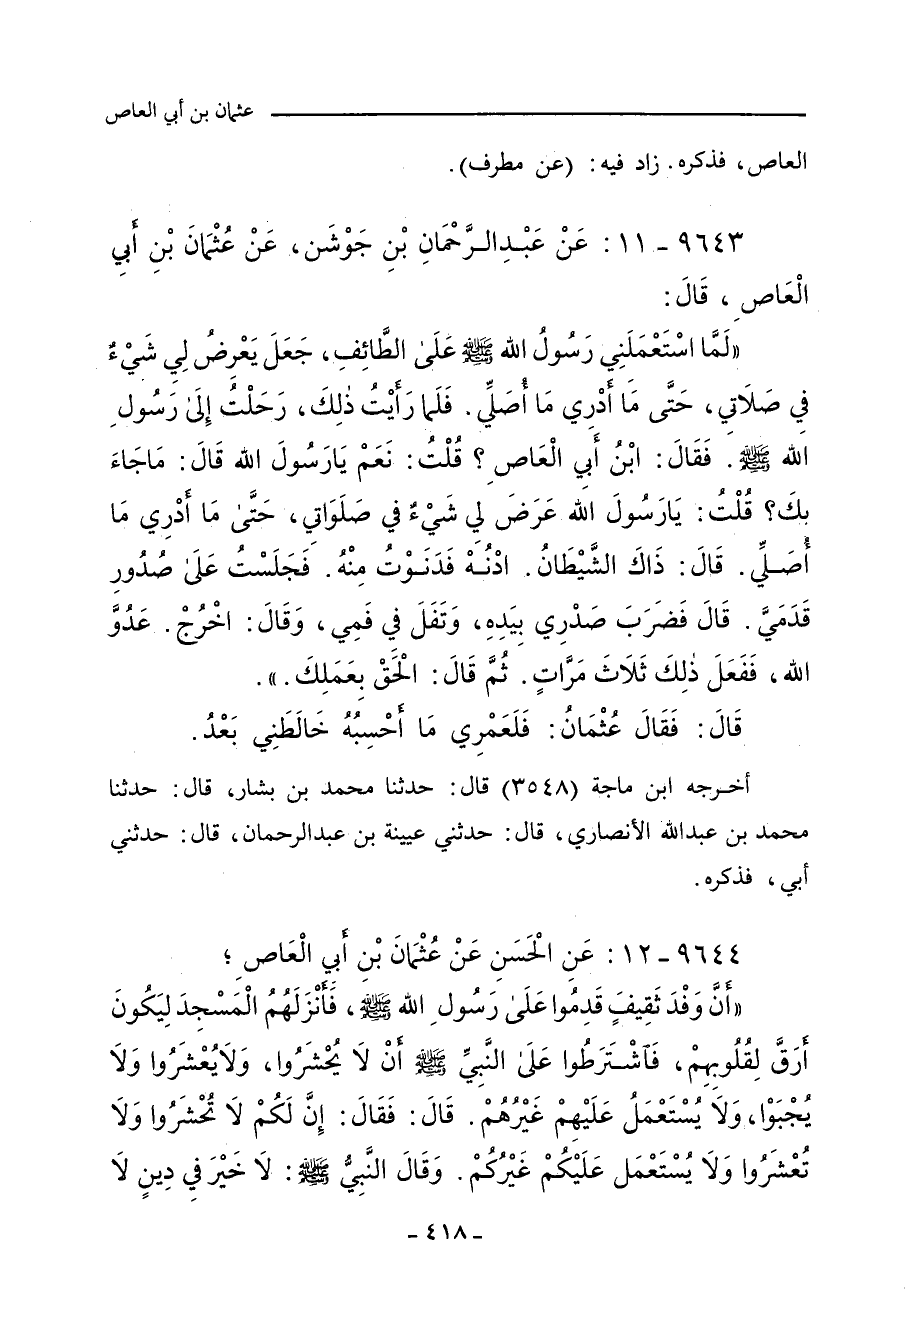 عثمان بن أبي العاص
العاص، فذكره. زاد فيه: (عن مطرف).
٩٦٤٣ - ١١: عَنْ عَبْدِالرَّحْمَانِ بْنِ جَوْشَنٍ، عَنْ عُثْمَانَ بْنِ أَبِي
الْعَاصِ، قَالَ:
«لَمَّا اسْتَعْمَلَنِي رَسُولُ اللهِ ﷺ عَلَىٰ الطَّائِفِ، جَعَلَ يَعْرِضُ لِي شَيْءٌ
فِي صَلَاتِي، حَتَّى مَا أَدْرِي مَا أُصَلِّي. فَلَما رَأَيْتُ ذٰلِكَ، رَحَلْتُ إِلَىٰ رَسُولِ
اللهِ ﷺ. فَقَالَ: ابْنُ أَبِي الْعَاصِ؟ قُلْتُ: نَعَمْ يَارَسُولَ اللهِ قَالَ: مَاجَاءَ
بِكَ؟ قُلْتُ: يَارَسُولَ اللهِ عَرَضَ لِي شَيْءٌ فِي صَلَوَاتِي، حَتَّىٰ مَا أَدْرِي مَا
أُصَلِّي. قَالَ: ذَاكَ الشَّيْطَانُ. ادْنُهْ فَدَنَوْتُ مِنْهُ. فَجَلَسْتُ عَلَىٰ صُدُورِ
قَدَمَيَّ. قَالَ فَضَرَبَ صَدْرِي بِيَدِهِ، وَتَفَلَ فِي فَمِي، وَقَالَ: اخْرُجْ. عَدُوَّ
اللهِ، فَفَعَلَ ذٰلِكَ ثَلَاثَ مَرَّاتٍ. ثُمَّ قَالَ: الْحَقْ بِعَمَلِكَ.».
قَالَ: فَقَالَ عُثْمَانُ: فَلَعَمْرِي مَا أَحْسِبُهُ خَالَطَنِي بَعْدُ.
أخرجه ابن ماجة (٣٥٤٨) قال: حدثنا محمد بن بشار، قال: حدثنا
محمد بن عبدالله الأنصاري، قال: حدثني عيينة بن عبدالرحمان، قال: حدثني
أبي، فذكره.
٩٦٤٤ - ١٢: عَنِ الْحَسَنِ عَنْ عُثْمَانَ بْنِ أَبِي الْعَاصِ؛
«أَنَّ وَفْدَ ثَقِيفٍ قَدِمُوا عَلَىٰ رَسُولِ اللهِ ﷺ، فَأَنْزَلَهُمُ الْمَسْجِدَ لِيَكُونَ
أَرَقَّ لِقُلُوبِهِمْ، فَاشْتَرَطُوا عَلَىٰ النَّبِيِّ ﷺ أَنْ لَا يُحْشَرُوا، وَلَايُعْشَرُوا وَلَا
يُجْبَوْا، وَلَا يُسْتَعْمَلُ عَلَيْهِمْ غَيْرُهُمْ. قَالَ: فَقَالَ: إِنَّ لَكُمْ لَا تُحْشَرُوا وَلَا
تُعْشَرُوا وَلَا يُسْتَعْمَلَ عَلَيْكُمْ غَيْرُكُمْ. وَقَالَ النَّبِيُّ ﷺ: لَا خَيْرَ فِي دِينٍ لَا
- ٤١٨ -